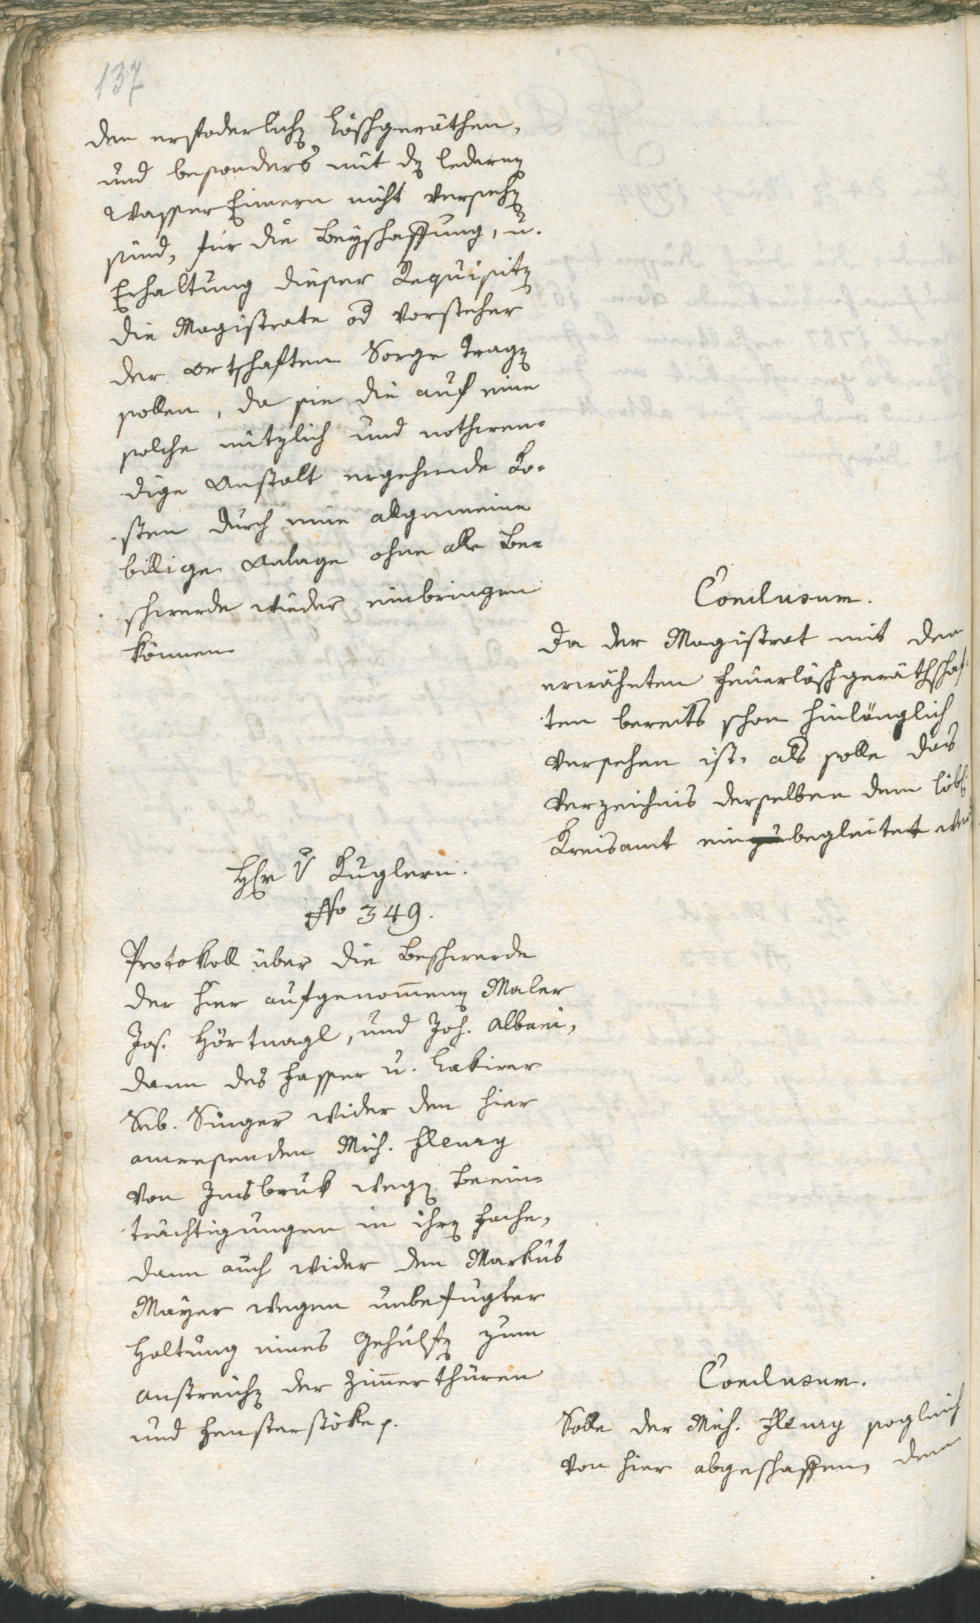 137
den erfoderlichen Löschgeräthen,
und besonders mit den ledernen
Wasser Eimern nicht versehen
sind, für die Beyschaffung, u.
Erhaltung dieser Requisiten
die Magistrate od Vorsteher
der Ortschaften Sorge tragen
sollen, da sie die auf eine
solche nützlich und nothwen-
dige Anstalt ergehende Ko-
sten durch eine allgemeine
billige Anlage ohne alle Be-
schwerde wieder einbringen
können
Conclusum.
Da der Magistrat mit den
erwähnten Feuerlöschgeräthschaf-
ten bereits schon hinlänglich
versehen ist, als solle das
Verzeichnis derselben dem löbl.
Kreisamt einbegleitet
Hr v Kuglern.
No 349.
Protokoll über die Beschwerde
der hier aufgenommenen Maler
Jos. Hörtnagl, und Joh. Albani,
dann des Fasser u. Lakirer
Seb. Singer wider den hier
anwesenden Mich. Fleury
von Insbruk wegen Beein-
trächtigungen in ihren Fache,
dann auch wider den Markus
Mayer wegen unbefugter
Haltung eines Gehülfen zum
anstreichen der Zimmerthüren
und Fensterstöke.
Conclusum.
Solle der Mich. Fleury sogleich
von hier abgeschaffen, dem